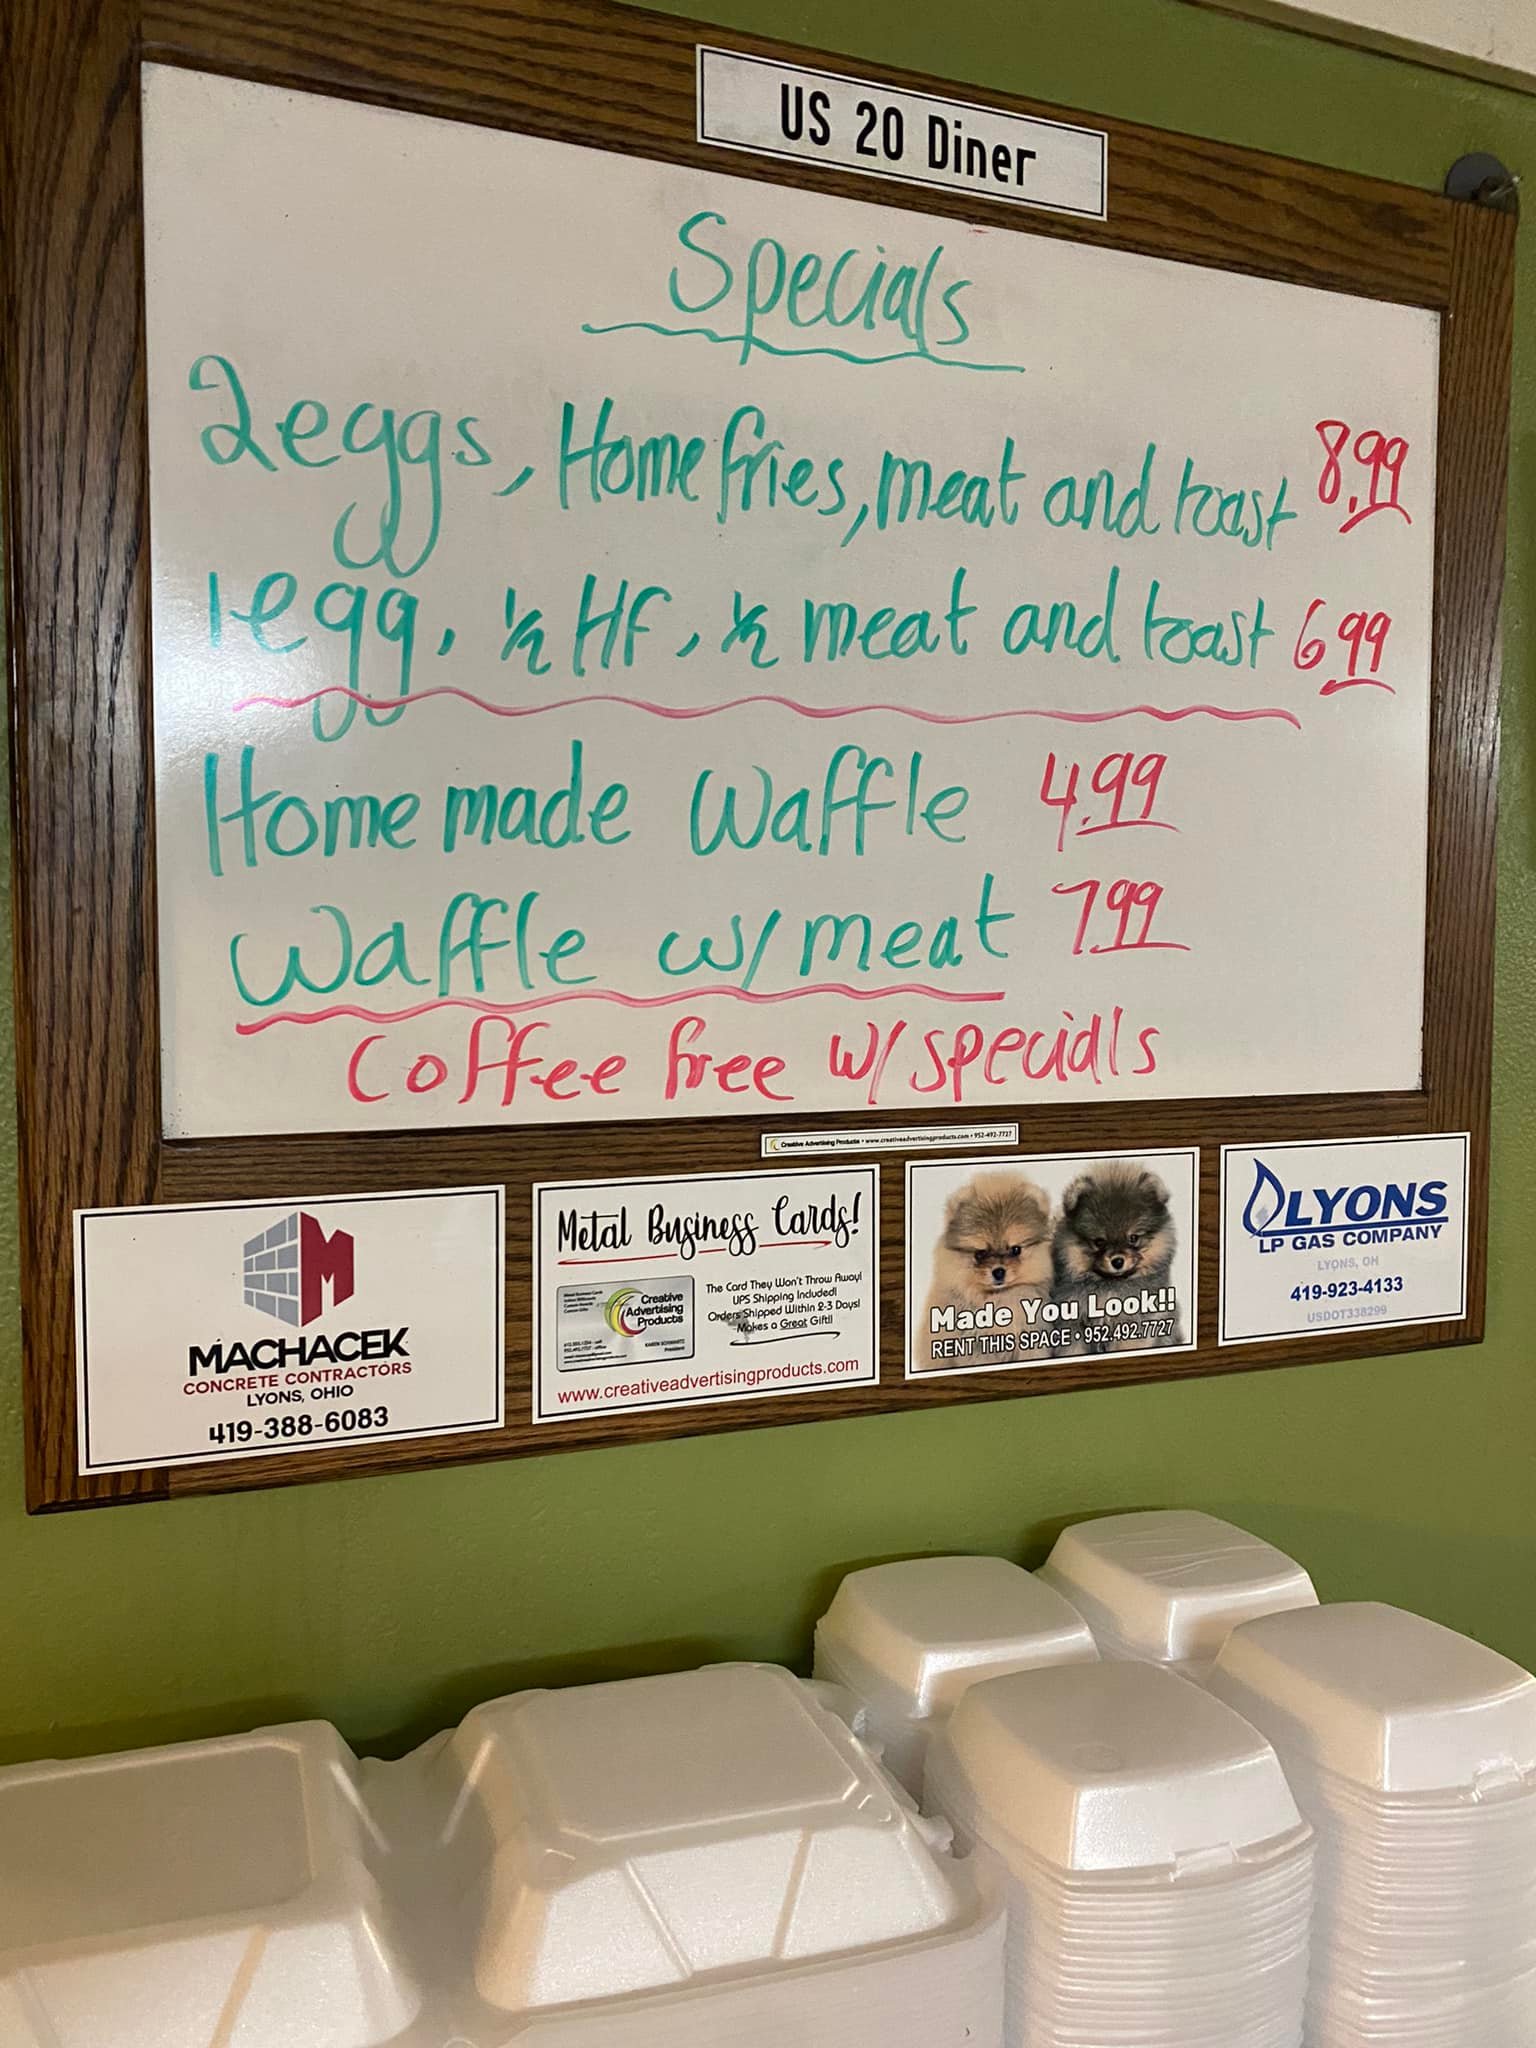 US 20 Diner
Specials
2 eggs, Home fries, meat and toast 8.99
1 egg, 1/2 HF, 1/2 meat and toast 6.99
Homemade Waffle 4.99
Waffle w/ meat 7.99
Coffee free w/ specials
Creative Advertising Products • www.creativeadvertisingproducts.com • 952-492-7727
M
MACHACEK
CONCRETE CONTRACTORS
LYONS, OHIO
419-388-6083
Metal Business Cards!
Creative
Advertising
Products
KAREN SCHWARTZ
President
The Card They Won't Throw Away!
UPS Shipping Included!
Orders Shipped Within 2-3 Days!
Makes a Great Gift!!
www.creativeadvertisingproducts.com
Made You Look!!
RENT THIS SPACE • 952.492.7727
LYONS
LP GAS COMPANY
LYONS, OH
419-923-4133
USDOT338299